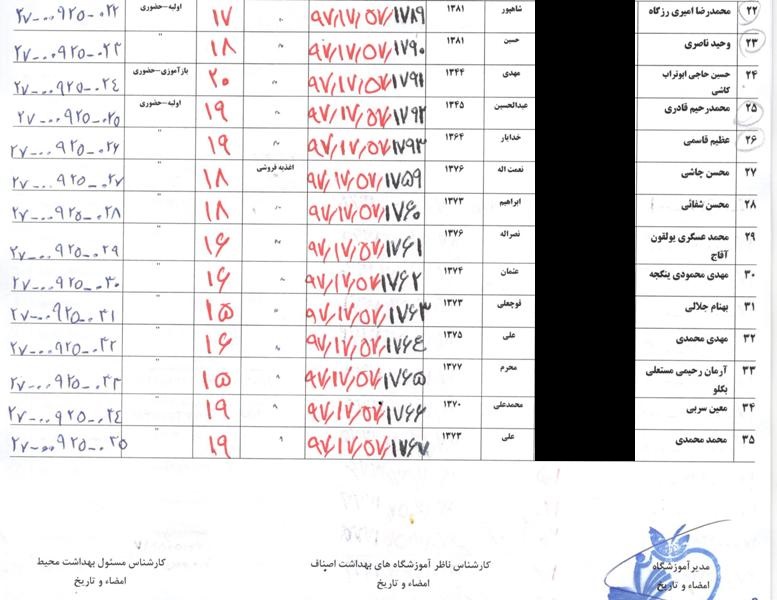 ۲۲ محمدرضا امیری رزگاه شاهپور ۱۳۸۱ ۹۷/۱۷/۵۷/۱۷۸۹ " ۱۷ اولیه-حضوری ۲۷-۰۰۹۲۵-۰۲۲
۲۳ وحید ناصری حسین ۱۳۸۱ ۹۷/۱۷/۵۷/۱۷۹۰ " ۱۸ " ۲۷-۰۰۹۲۵-۰۲۳
۲۴ حسین حاجی ابوتراب کاشی مهدی ۱۳۴۴ ۹۷/۱۷/۵۷/۱۷۹۱ " ۲۰ بازآموزی-حضوری ۲۷-۰۰۹۲۵-۰۲۴
۲۵ محمدرحیم قادری عبدالحسین ۱۳۴۵ ۹۷/۱۷/۵۷/۱۷۹۲ " ۱۹ اولیه-حضوری ۲۷-۰۰۹۲۵-۰۲۵
۲۶ عظیم قاسمی خدایار ۱۳۶۴ ۹۷/۱۷/۵۷/۱۷۹۳ " ۱۹ " ۲۷-۰۰۹۲۵-۰۲۶
۲۷ محسن چاشی نعمت اله ۱۳۷۶ ۹۷/۱۷/۵۷/۱۷۵۹ اغذیه فروشی ۱۸ " ۲۷-۰۰۹۲۵-۰۲۷
۲۸ محسن شفائی ابراهیم ۱۳۷۳ ۹۷/۱۷/۵۷/۱۷۶۰ " ۱۸ " ۲۷-۰۰۹۲۵-۰۲۸
۲۹ محمد عسگری یولقون آقاج نصراله ۱۳۷۶ ۹۷/۱۷/۵۷/۱۷۶۱ " ۱۶ " ۲۷-۰۰۹۲۵-۰۲۹
۳۰ مهدی محمودی ینگجه عثمان ۱۳۷۴ ۹۷/۱۷/۵۷/۱۷۶۲ " ۱۶ " ۲۷-۰۰۹۲۵-۰۳۰
۳۱ بهنام جلالی قوچعلی ۱۳۷۳ ۹۷/۱۷/۵۷/۱۷۶۳ " ۱۵ " ۲۷-۰۰۹۲۵-۰۳۱
۳۲ مهدی محمدی علی ۱۳۷۵ ۹۷/۱۷/۵۷/۱۷۶۴ " ۱۶ " ۲۷-۰۰۹۲۵-۰۳۲
۳۳ آرمان رحیمی مستعلی بگلو محرم ۱۳۷۷ ۹۷/۱۷/۵۷/۱۷۶۵ " ۱۵ " ۲۷-۰۰۹۲۵-۰۳۳
۳۴ معین سربی محمدعلی ۱۳۷۰ ۹۷/۱۷/۵۷/۱۷۶۶ " ۱۹ " ۲۷-۰۰۹۲۵-۰۳۴
۳۵ محمد محمدی علی ۱۳۷۳ ۹۷/۱۷/۵۷/۱۷۶۷ " ۱۹ " ۲۷-۰۰۹۲۵-۰۳۵
مدیرآموزشگاه
امضاء و تاریخ
کارشناس ناظر آموزشگاه های بهداشت اصناف
امضاء و تاریخ
کارشناس مسئول بهداشت محیط
امضاء و تاریخ